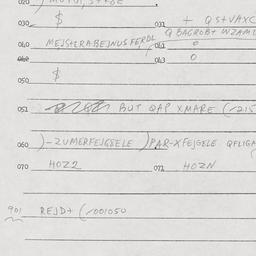 020
030 $ 031 + QS+VAXC
040 MEJSTERABEJNUSFERDL 041 Q BAGROB+ WZAM
042 043 0
050 $
051 BUT QAP XMARE (/215
060 )-ZUMERFEJGEELE )PAR-XFEJGELE QFLIGA
070 HOZZ 071 HOZN
901 REJD+ (/001050